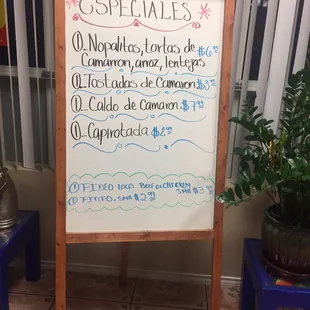 ESPECIALES
①. Nopalitos, tortas de $6.99
Camaron, arroz, lentejas
①. Tostadas de Camaron $3.
①. Caldo de Camaron. $7.99
①. Capirotada $2.
① FIDEO LOCO. BEEF OR CHICKEN
SMA $3.
① FIDEO. SMA $2.